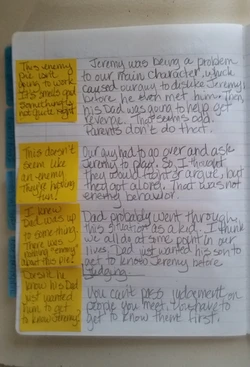 This enemy
pie isn't
going to work.
It smells good
something is
not quite right
Jeremy was being a problem
to our main character, which
caused our guy to dislike Jeremy
before he even met him. Then
his Dad was going to help get
revenge. That seems odd.
Parents don't do that.
This doesn't
seem like
an enemy
They're having
fun!
Our guy had to go over and ask
Jeremy to play. So, I thought
they would fight or argue, but
they got along. That was not
enemy behavior.
I knew
Dad was up
to something.
There was
nothing "enemy"
about this pie!
Dad probably went through
this situation as a kid. I think
we all do at some point in our
lives. Dad just wanted his son to
get to know Jeremy before
judging.
he
knew his Dad
just wanted
them to get
to know Jeremy.
You can't pass judgement on
people you meet. You have to
get to know them first.